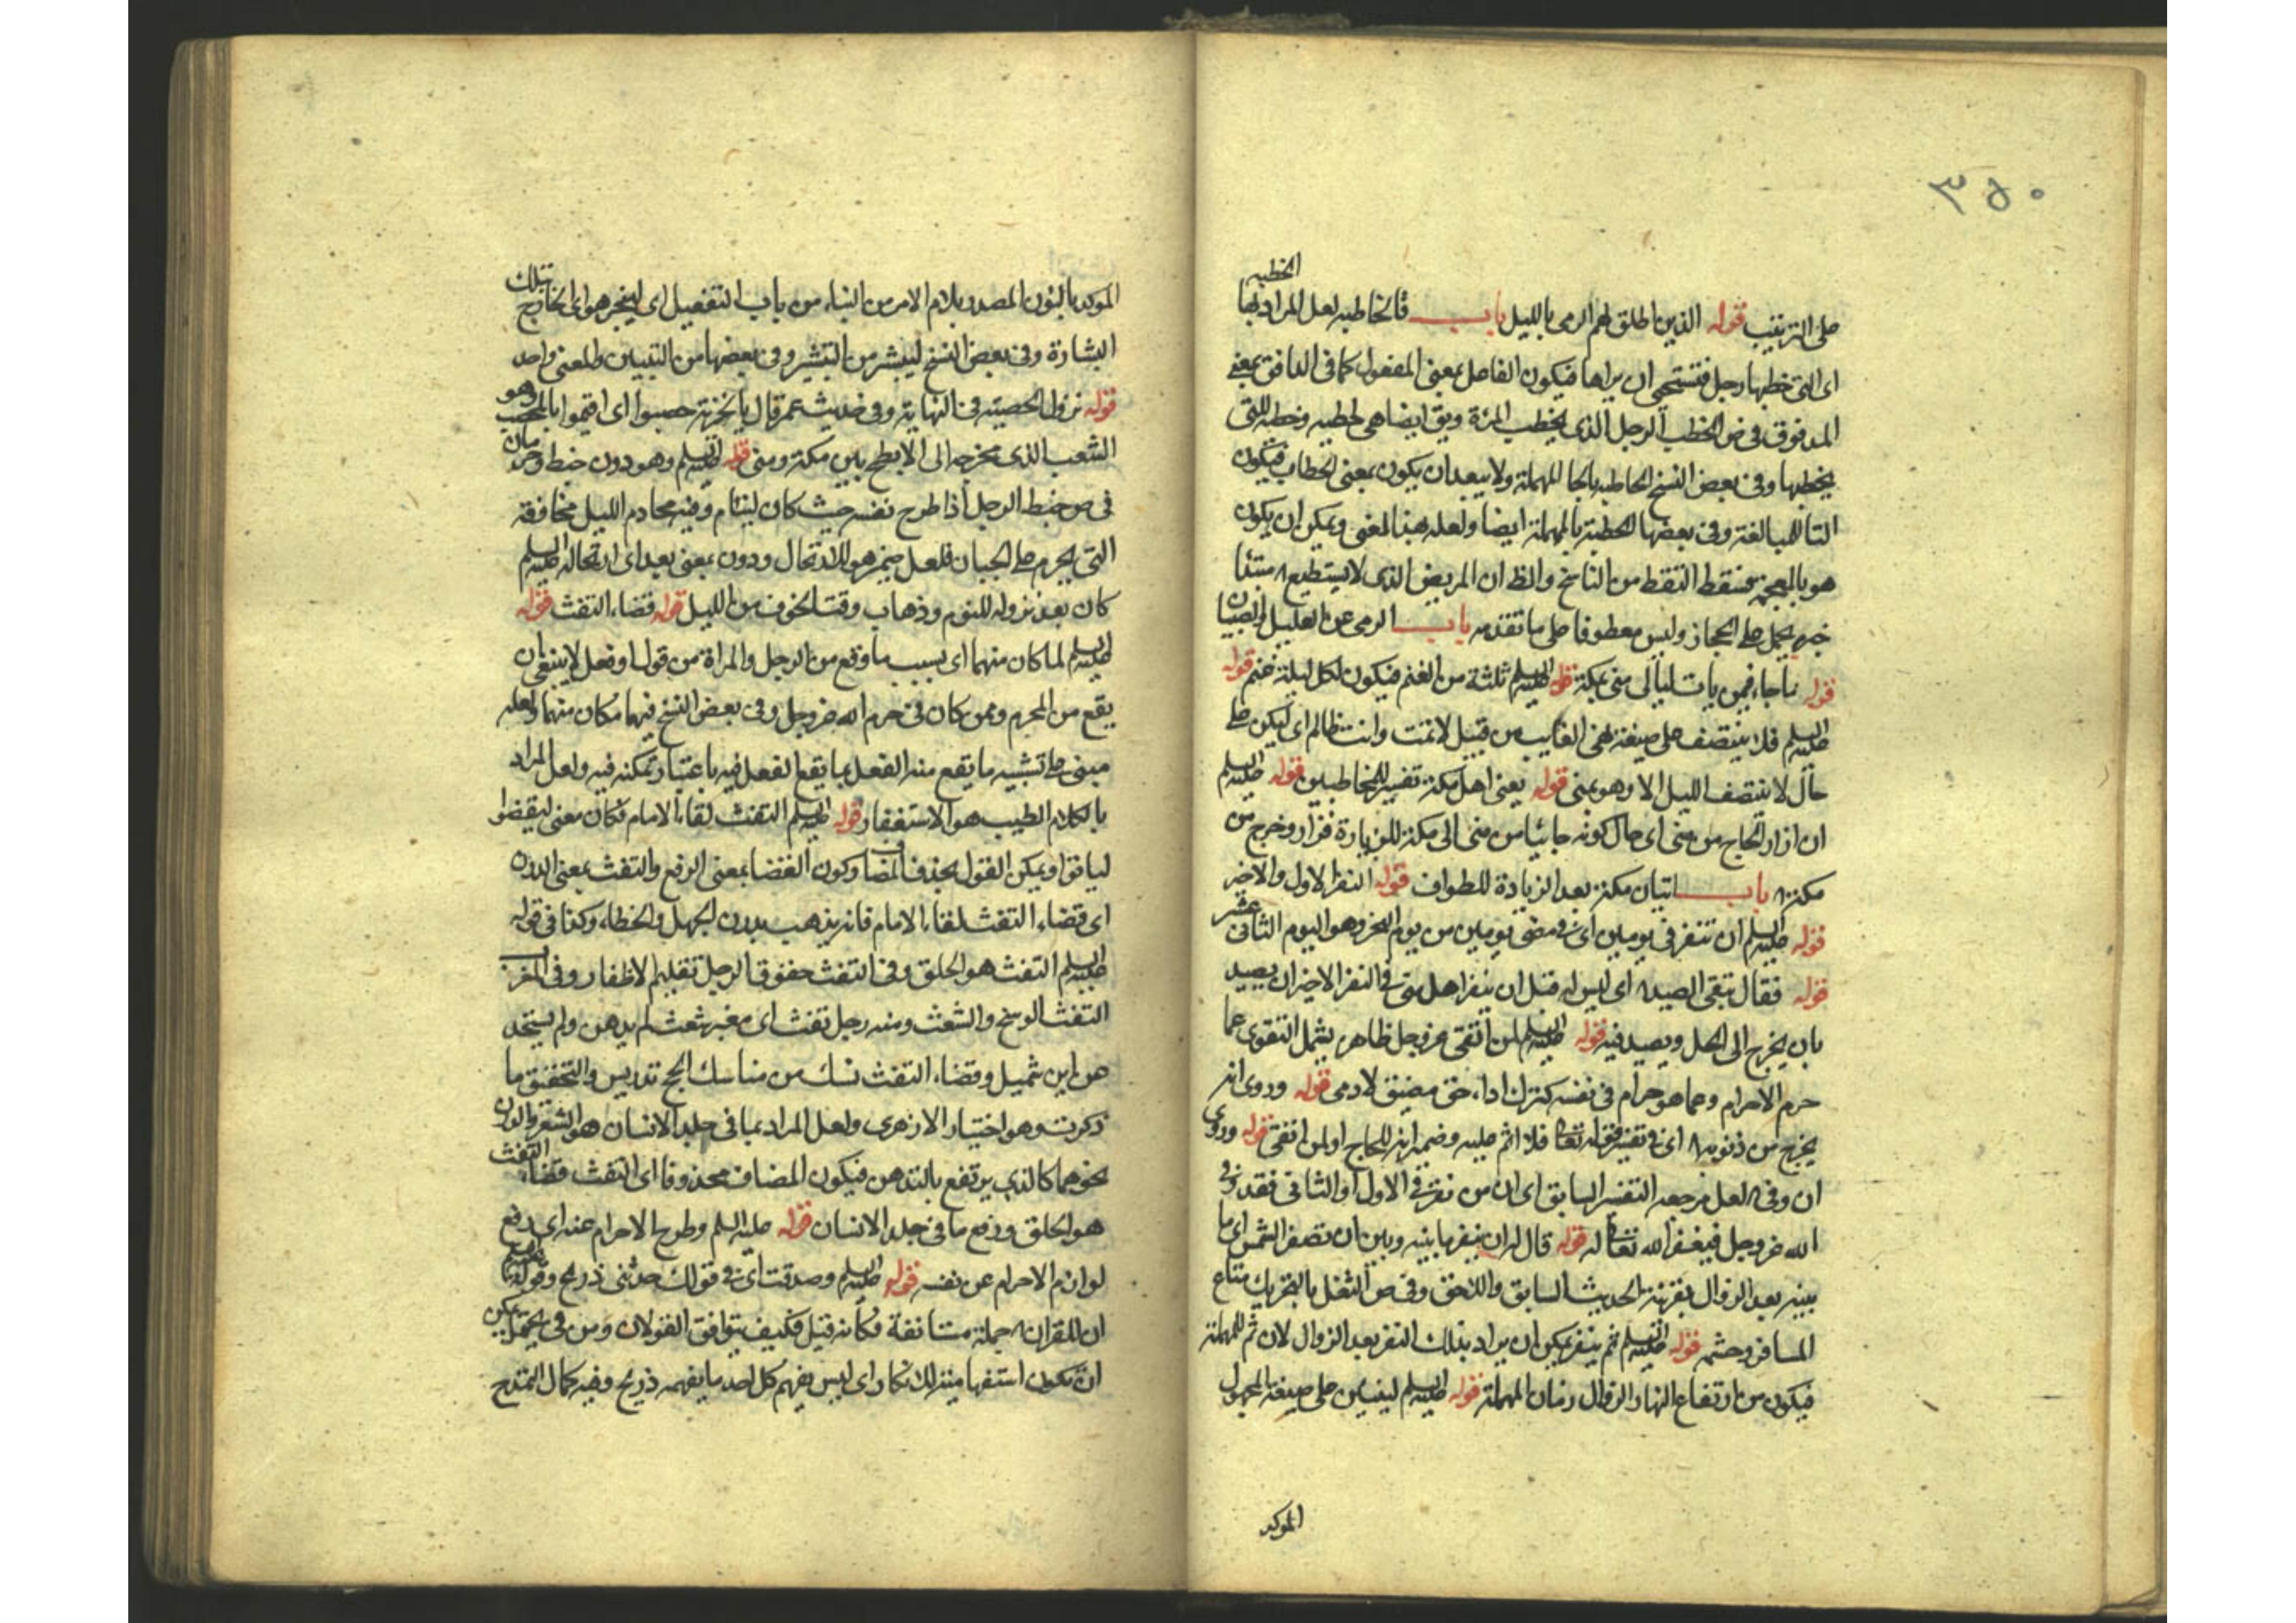 ٣٥٠
الخطبه
على الترتيب قوله الذين اطلق لهم الرمى بالليل باب فالخاطبه لعل المراد بها
اى التى خطبها رجل فتستحيى ان يراها فيكون الفاعل بمعنى المفعول كما فى الدافق بمعنى
المدفوق فى ص الخطب الرجل الذى يخطب المرءة ويق ايضا هى خطبه وخطبه للتى
يخطبها وفى بعض النسخ الحاطبه بالحا المهملة ولا يبعد ان يكون بمعنى الحطاب فيكون
التا للمبالغة وفى بعضها الحطبة بالمهملة ايضا ولعله بهذا المعنى ويمكن ان يكون
هو بالمعجمة فسقط النقط من الناسخ والظ ان المريض الذى لا يستطيع مبتدا
خبره يحمل على الحجاز وليس معطوفا على ما تقدمه باب الرمى عن العليل والصبيان
قوله ما جاء فيمن بات ليالى منى بمكة قوله عليه السلم ثلثة من الغنم فيكون لكل ليلة غنم قوله
عليه السلم فلا ينتصف على صيغة نهى الغايب من قبيل لا تمت وانت ظالم اى ليكن على
حال لا ينتصف الليل الا وهو بمنى قوله يعنى اهل مكة تفسير للمخاطبين قوله عليه السلم
ان ازار الحاج من منى اى حال كونه جائيا من منى الى مكة للزيارة فزار وخرج من
مكة باب اتيان مكة بعد الزيادة للطواف قوله النفر الاول والاخر
قوله عليه السلم ان تنفر فى يومين اى فى مضى يومين من يوم النحر وهو اليوم الثانى عشر
قوله فقال تبقى الصيد اى ليس له قبل ان ينفر اهل منى فى النفر الاخير ان يصيد
بان يخرج الى الحل ويصيد فيه قوله عليه السلم لمن اتقى عز وجل ظاهره يشمل التقوى عما
حرم الاحرام وعما هو حرام فى نفسه كترك اداء حق مضيق لادمى قوله وروى انه
يخرج من ذنوبه اى فى تفسير قوله تعالى فلا اثم عليه وضمير انه للحاج او لمن اتقى قوله وروى
ان وفى لعل مرجعه التفسير السابق اى ان من نفر فى الاول او الثانى فقد وفى
الله عز وجل فيغفر الله تعالى له قوله قال له ان ينفر ما بينه وبين ان تصفر الشمس اى ما
بينه بعد الزوال بقرينة الحديث السابق واللاحق وفى ص الثقل بالتحريك متاع
المسافر وحشمه قوله عليه السلم ثم ينفر يمكن ان يراد بذلك النفر بعد الزوال لان ثم للمهلة
فيكون من ارتفاع النهار الزوال زمان المهلة قوله عليه السلم ليبنين على صيغة المجهول
الموكد
الموكد بالنون المصدر بلام الامر من البناء من باب التفعيل اى ليخبر هو اى الخارج بتلك
البشارة وفى بعض النسخ ليبشر من التبشير وفى بعضها من التبيين والمعنى واحد
قوله نزول الحصبة فى النهاية وفى حديث عمر قال يا لخزيمة حصبوا اى اقيموا بالمحصب وهو
الشعب الذى مخرجه الى الابطح بين مكة ومنى قوله عليه السلم وهو دون خبط وحرمان
فى ص خبط الرجل اذا طرح نفسه حيث كان لينام وفيه محادم الليل مخاوفه
التى يحرم على الجبان فلعل ضمير هو للارتحال ودون بمعنى بعد اى ارتحاله عليه السلم
كان بعد نزوله للنوم وذهاب وقت الخوف من الليل قوله قضاء التفث قوله
عليه السلم لما كان منهما اى بسبب ما وقع من الرجل والمراة من قول او فعل لا ينبغى ان
يقع من المحرم وممن كان فى حرم الله عز وجل وفى بعض النسخ فيهما مكان منهما ولعله
مبنى على تشبيه ما يقع منه الفعل بما يقع الفعل فيه باعتبار تمكنه فيه ولعل المراد
بالكلام الطيب هو الاستغفار قوله عليه السلم التفث لقاء الامام فكان معنى ليقضوا
لياتوا ويمكن القول بحذف المضاف وكون القضا بمعنى الرفع والتفث بمعنى الدرن
اى قضاء التفث لقاء الامام فانه يذهب بدرن الجهل والخطاء وكذا فى قوله
عليه السلم التفث هو الحلق وفى التفث حفوف الرجل تقليم الاظفار وفى المغرب
التفث الوسخ والشعث ومنه رجل تفث اى مغبر شعث لم يدهن ولم يستحد
عن ابن شميل وقضاء التفث نسك من مناسك الحج تدريس والتحقيق ما
ذكرت وهو اختيار الازهرى ولعل المراد بما فى جلد الانسان هو الشعر والدرن
نحوهما كالذى يرتفع بالتدهن فيكون المضاف محذوفا اى التفث قضاء التفث
هو الحلق ورفع ما فى جلد الانسان قوله عليه السلم وطرح الاحرام عنه اى رفع
لوازم الاحرام عن نفسه قوله عليه السلم وصدقت اى فى قولك حدثنى ذريح وقوله
ان للقران جملة مستانفة فكأنه قيل فكيف يتوافق القولان ومن فى يحتمل يمكن
ان تكون استفهامية للانكار اى ليس يفهم كل احد ما يفهمه ذريح وفيه كمال المدح